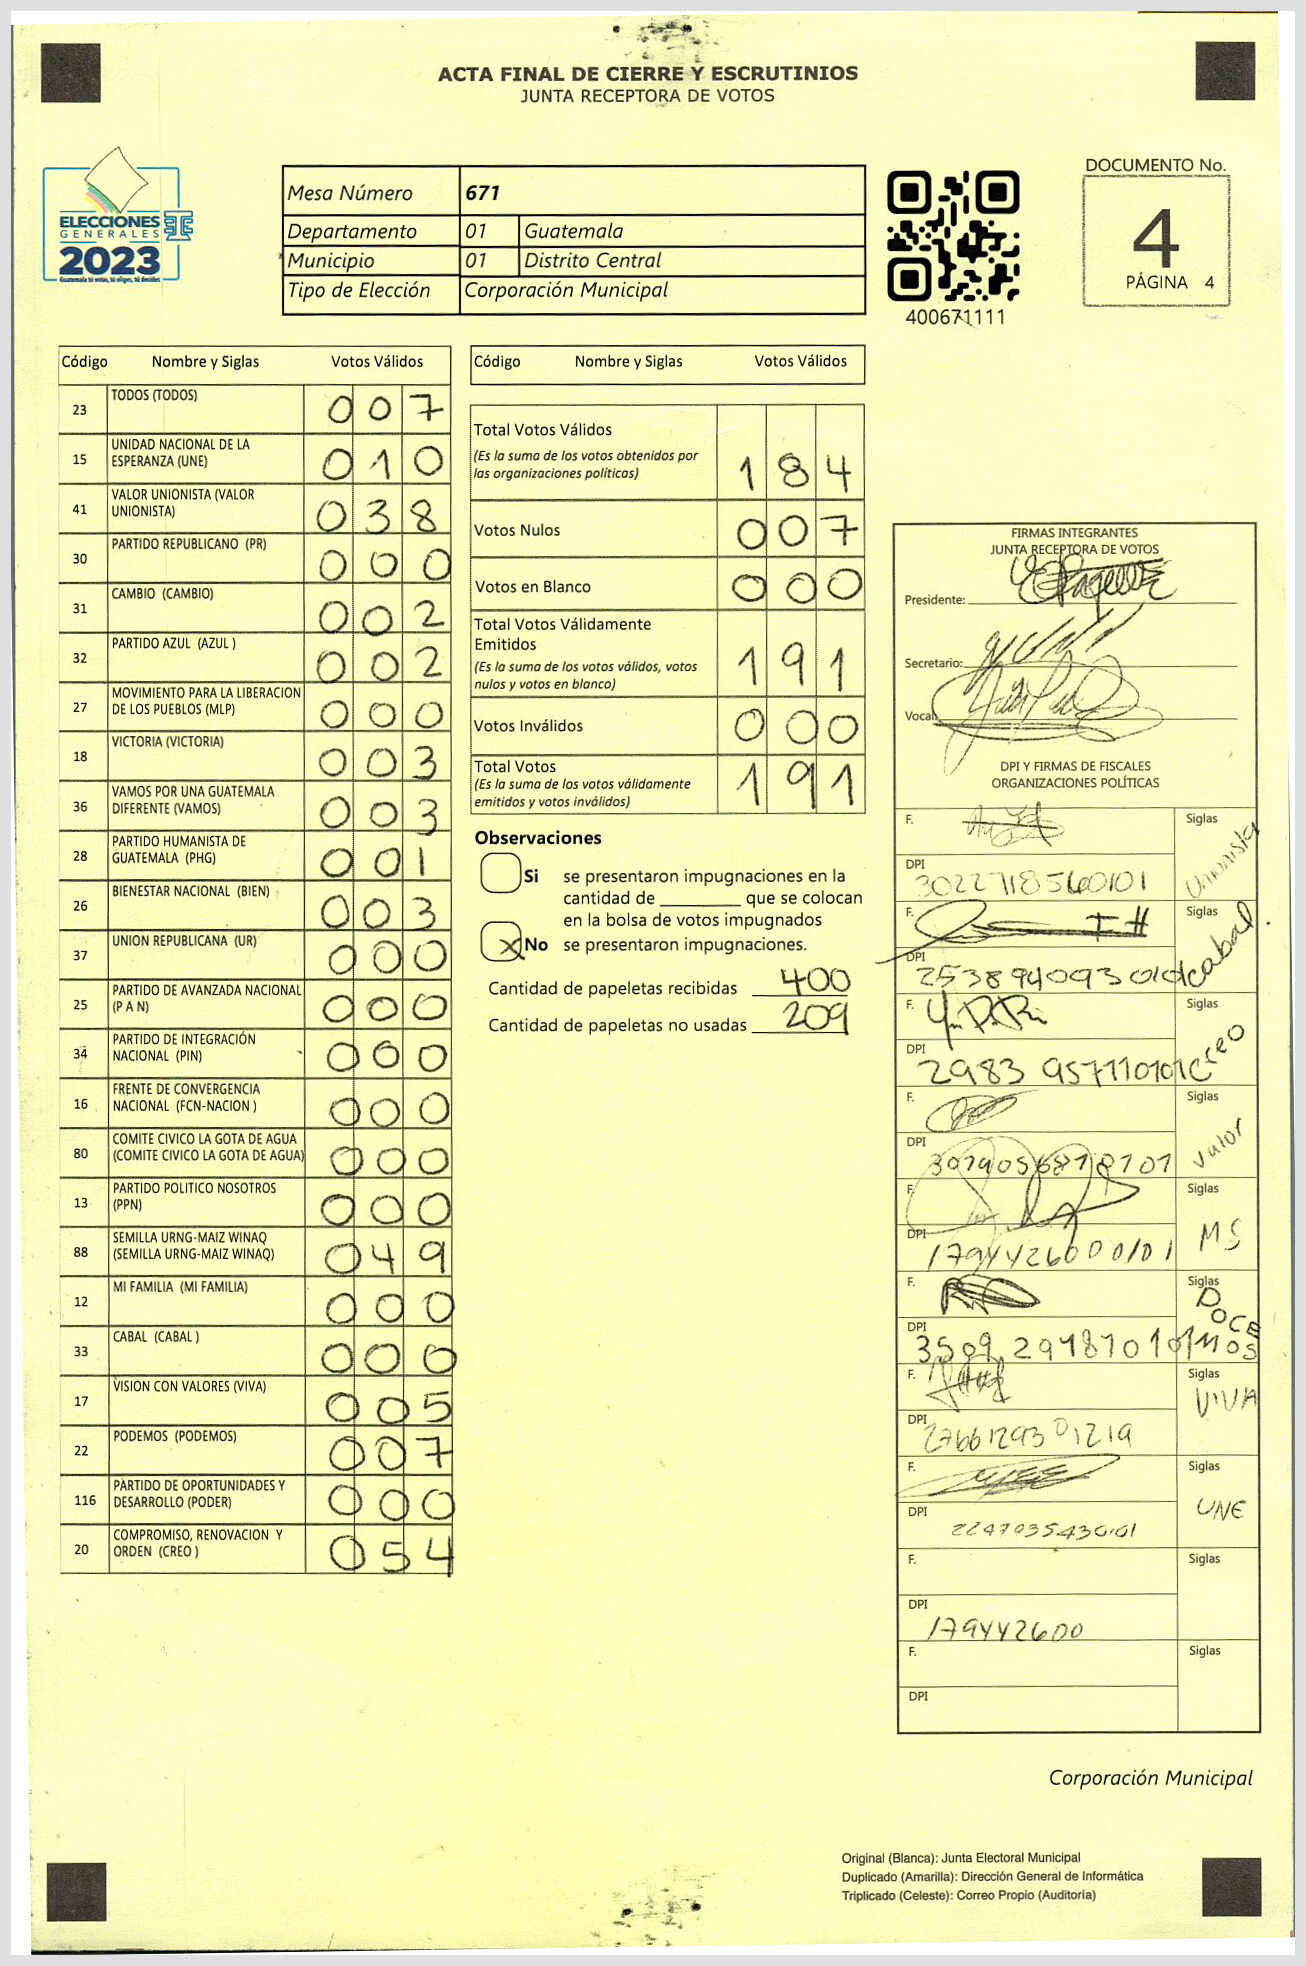 ACTA FINAL DE CIERRE Y ESCRUTINIOS
JUNTA RECEPTORA DE VOTOS
ELECCIONES
GENERALES
2023
Guatemala tú votas, tú eliges, tú decides
Mesa Número 671
Departamento 01 Guatemala
Municipio 01 Distrito Central
Tipo de Elección Corporación Municipal
400671111
DOCUMENTO No.
4
PÁGINA 4
Código Nombre y Siglas Votos Válidos
23 TODOS (TODOS) 0 0 7
15 UNIDAD NACIONAL DE LA ESPERANZA (UNE) 0 1 0
41 VALOR UNIONISTA (VALOR UNIONISTA) 0 3 8
30 PARTIDO REPUBLICANO (PR) 0 0 0
31 CAMBIO (CAMBIO) 0 0 2
32 PARTIDO AZUL (AZUL ) 0 0 2
27 MOVIMIENTO PARA LA LIBERACION DE LOS PUEBLOS (MLP) 0 0 0
18 VICTORIA (VICTORIA) 0 0 3
36 VAMOS POR UNA GUATEMALA DIFERENTE (VAMOS) 0 0 3
28 PARTIDO HUMANISTA DE GUATEMALA (PHG) 0 0 1
26 BIENESTAR NACIONAL (BIEN) 0 0 3
37 UNION REPUBLICANA (UR) 0 0 0
25 PARTIDO DE AVANZADA NACIONAL (P A N) 0 0 0
34 PARTIDO DE INTEGRACIÓN NACIONAL (PIN) 0 0 0
16 FRENTE DE CONVERGENCIA NACIONAL (FCN-NACION ) 0 0 0
80 COMITE CIVICO LA GOTA DE AGUA (COMITE CIVICO LA GOTA DE AGUA) 0 0 0
13 PARTIDO POLITICO NOSOTROS (PPN) 0 0 0
88 SEMILLA URNG-MAIZ WINAQ (SEMILLA URNG-MAIZ WINAQ) 0 4 9
12 MI FAMILIA (MI FAMILIA) 0 0 0
33 CABAL (CABAL ) 0 0 0
17 VISION CON VALORES (VIVA) 0 0 5
22 PODEMOS (PODEMOS) 0 0 7
116 PARTIDO DE OPORTUNIDADES Y DESARROLLO (PODER) 0 0 0
20 COMPROMISO, RENOVACION Y ORDEN (CREO ) 0 5 4
Código Nombre y Siglas Votos Válidos
Total Votos Válidos 1 8 4
(Es la suma de los votos obtenidos por
las organizaciones políticas)
Votos Nulos 0 0 7
Votos en Blanco 0 0 0
Total Votos Válidamente
Emitidos 1 9 1
(Es la suma de los votos válidos, votos
nulos y votos en blanco)
Votos Inválidos 0 0 0
Total Votos 1 9 1
(Es la suma de los votos válidamente
emitidos y votos inválidos)
Observaciones
Si se presentaron impugnaciones en la
cantidad de ________ que se colocan
en la bolsa de votos impugnados
X No se presentaron impugnaciones.
Cantidad de papeletas recibidas 400
Cantidad de papeletas no usadas 209
FIRMAS INTEGRANTES
JUNTA RECEPTORA DE VOTOS
Presidente:
Secretario:
Vocal:
DPI Y FIRMAS DE FISCALES
ORGANIZACIONES POLÍTICAS
F. Siglas Unionista
DPI 3022718560101
F. Siglas Cabal
DPI
F. Siglas Creo
DPI 2983 957110101
F. Siglas Valor
DPI
F. Siglas MS
DPI 1794426000101
F. Siglas
DPI
F. VIVA
DPI 2766129301219
F. Siglas UNE
DPI 2247935430101
F. Siglas
DPI 179442600
F. Siglas
DPI
Corporación Municipal
Original (Blanca): Junta Electoral Municipal
Duplicado (Amarilla): Dirección General de Informática
Triplicado (Celeste): Correo Propio (Auditoría)